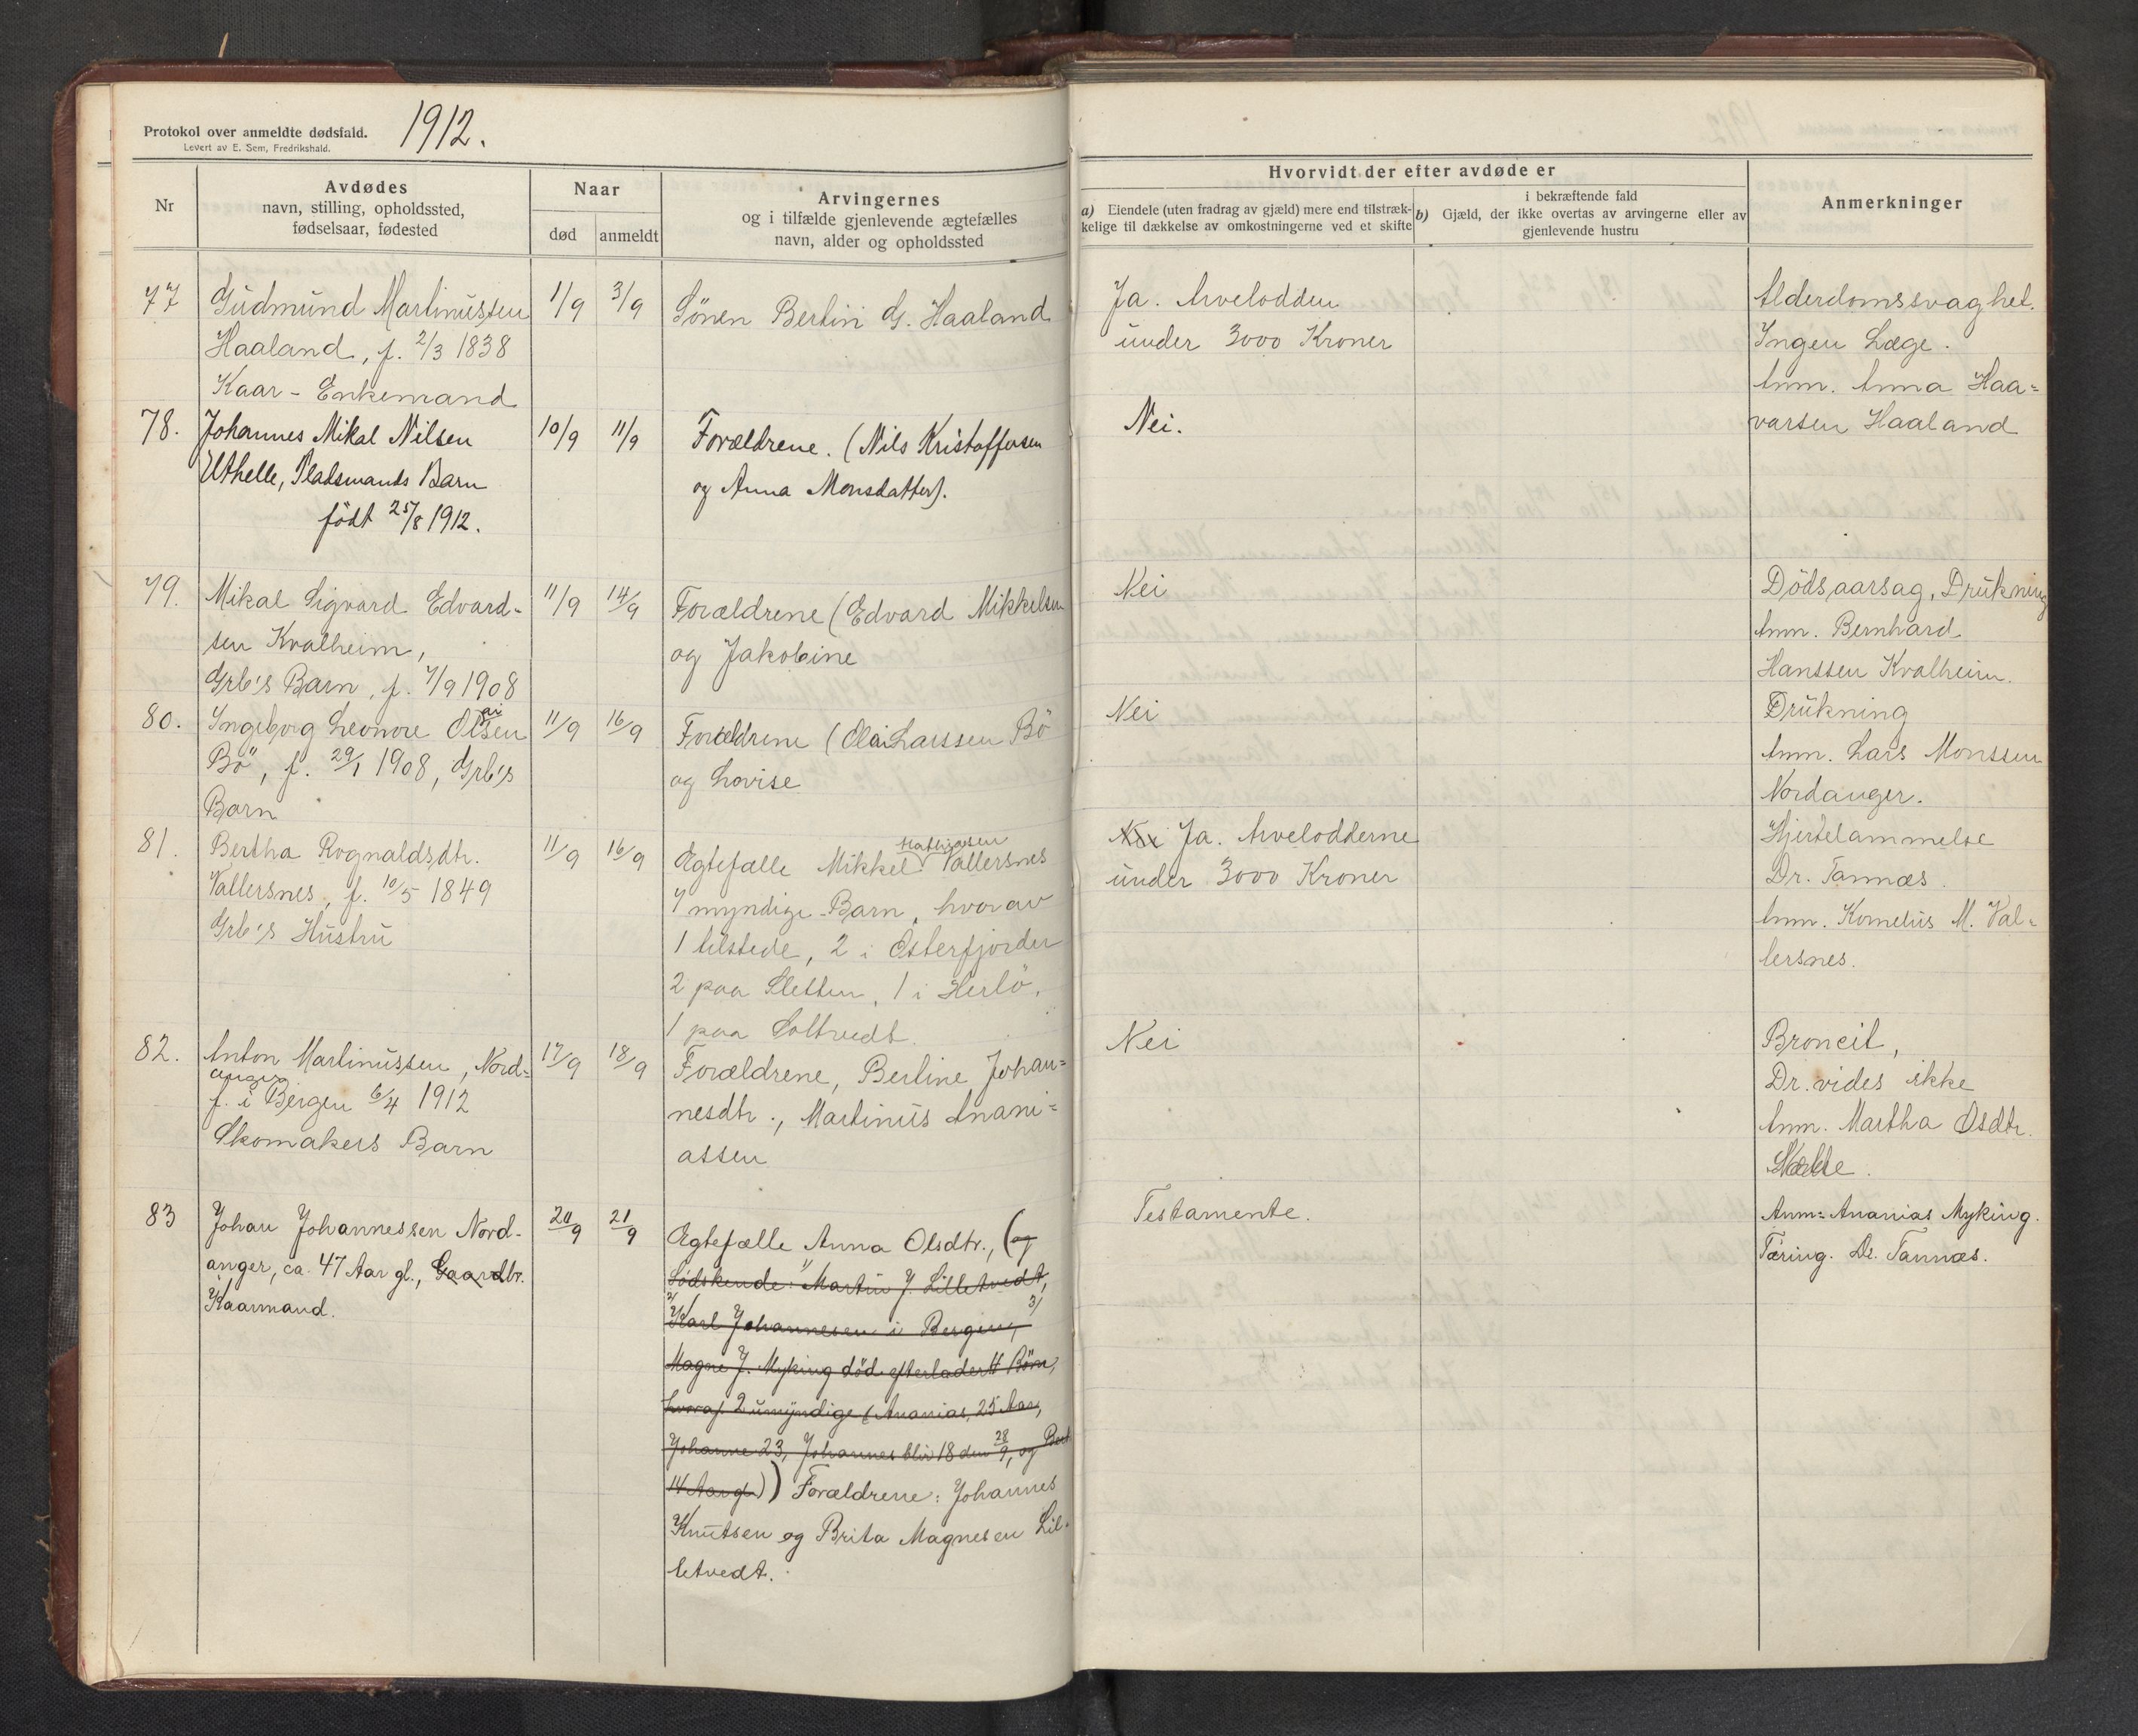 Protokol over anmeldte dødsfald. 1912.
Levert av E. Sem, Fredrikshald.
Nr
Avdødes
navn, stilling, opholdssted,
fødselsaar, fødested
Naar
død
anmeldt
Arvingernes
og i tilfælde gjenlevende ægtefælles
navn, alder og opholdssted
Hvorvidt der efter avdøde er
a) Eiendele (uten fradrag av gjæld) mere end tilstræk-
kelige til dækkelse av omkostningerne ved et skifte
i bekræftende fald
b) Gjæld, der ikke overtas av arvingerne eller av
gjenlevende hustru
Anmerkninger
77
Gudmund Martinussen
Haaland, f. 2/3 1838
Kaar-Enkemand
1/9
3/9
Sönen Bertin G. Haaland
Ja. Arvelodden
under 3000 Kroner
Alderdomssvaghet.
Ingen Læge.
Anm. Anna Haa=
varsen Haaland
78.
Johannes Mikal Nilsen
Uthelle, Pladsmands Barn
født 25/8 1912.
10/9
11/9
Forældrene. (Nils Kristoffersen
og Anna Monsdatter).
Nei.
79.
Mikal Sigvard Edvard-
sen Kvalheim,
Grb's Barn, f. 7/9 1908
11/9
14/9
Forældrene (Edvard Mikkelsen
og Jakobine
Nei
Dödsaarsag, Drukning
Anm. Bernhard
Hanssen Kvalheim.
80.
Ingeborg Leonore Olsen
ai
Bö, f. 29/1 1908, Grb's
Barn
11/9
16/9
Forældrene (Olai Larssen Bö
og Lovise
Nei
Drukning
Anm. Lars Monssen
Nordanger.
81.
Bertha Rognaldsdtr.
Vallersnes, f. 10/5 1849
Grb's Hustru
11/9
16/9
Mathiasen
Ægtefælle Mikkel Vallersnes
7 myndige Barn, hvorav
1 tilstede, 2 i Osterfjorden
2 paa Sletten, 1 i Herlö,
1 paa Soltvedt.
Nei Ja. Arvelodderne
under 3000 Kroner
Hjertelammelse
Dr. Tannæs.
Anm. Kornelius M. Val=
lersnes.
82.
Anton Martinussen, Nord=
anger
f. i Bergen 6/4 1912
Skomakers Barn
17/9
18/9
Forældrene, Berline Johan=
nesdtr., Martinus Anani=
assen
Nei
Broncit,
Dr. vides ikke
Anm. Martha Osdtr.
83
Johan Johannessen Nord-
anger, ca. 47 Aar gl., Gaardbr.
Kaarmand.
20/9
21/9
Ægtefælle Anna Olsdtr., (og
Södskende: Martin J. Lilletvedt,
2) Karl Johannesen i Bergen, 3)
Magne J. Myking död efterladt 4 Börn,
hvoraf 2 umyndige (Ananias, 25 Aar,
Johanne 23, Johannes blir 18 den 28/9, og
14 Aar gl.)) Forældrene: Johannes
Knutsen og Brita Magnesen Lil-
letvedt.
Testamente.
Anm: Ananias Myking.
Tæring. Dr. Tannæs.